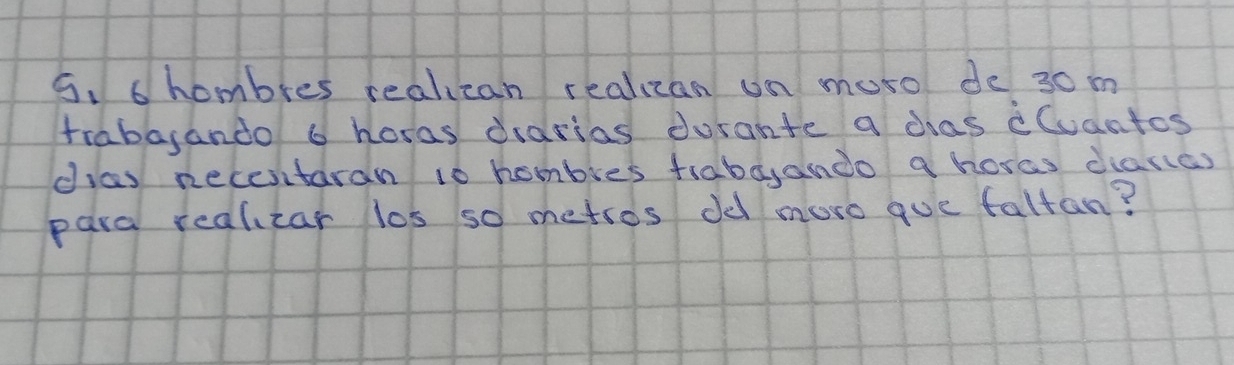 Si 6 hombres realizan realizan un muro de 30 m
trabajando 6 horas diarias durante 9 dias ¿Cuantos
dias necesitaran 10 hombres trabajando 9 horas diarias
para realizar los 50 metros del muro que faltan?